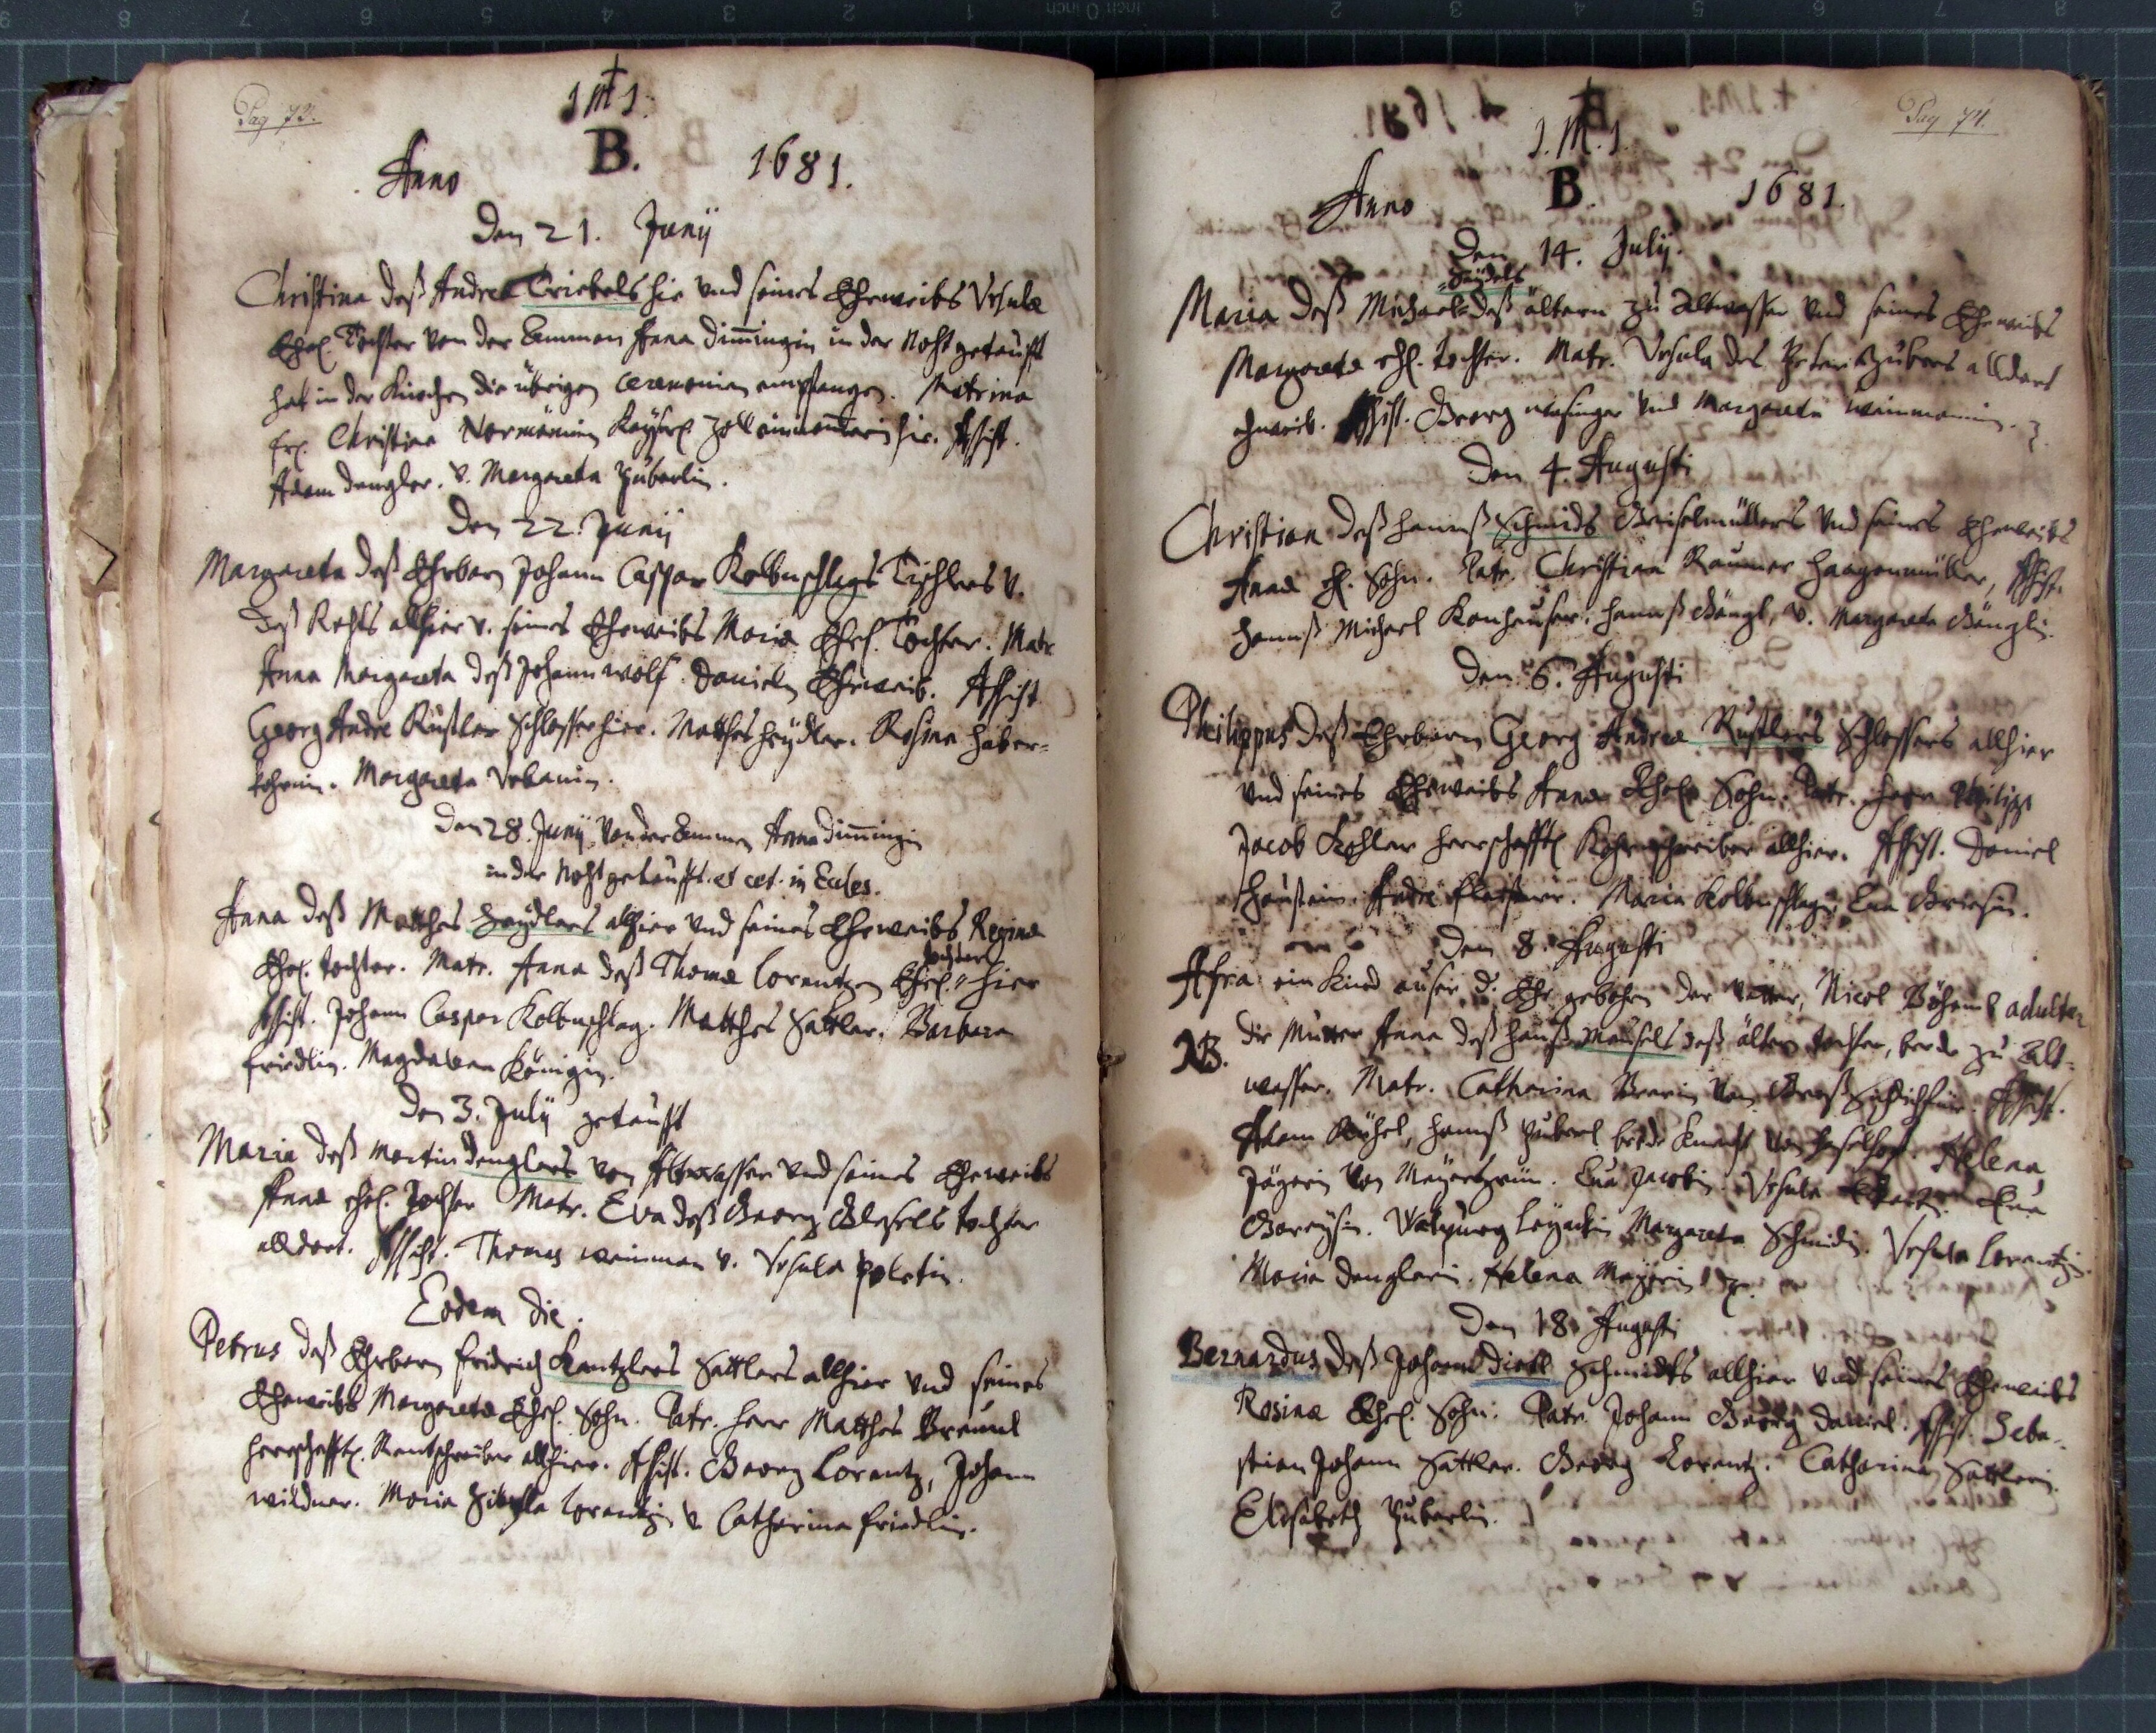 Pag 73.
J M J
B.
Anno 1681.
Den 21. Junij
Christina deß Andreæ Triebels hie und seines Eheweibs Ursulæ
Ehel. Tochter von der Ammen Anna Dimingin in der Noht getaufft
hat in der Kirchen die übrigen ceremonien empfangen. Matrina
fr. Christina Normänin Kayserl. Zoll einnemerin hie. Assist.
Adam Dengler. v. Margareta Huberlin.
Den 22. Junij
Margareta deß Ehrbarn Johann Caspar Kolbnschlags Tischlers v.
deß Rahts allhier v. seines Eheweibs Maria Ehel. Tochter. Matr
Anna Margareta deß Johann Wolf Daniels Eheweib. Assist
Georg Andre Rustler Schlosser hier. Matthes Heydler. Rosina Haber=
Margareta Urbanin.
Den 28. Junij von der Ammen Anna Dimingin
in der Noht getaufft. et cet. in Eccles.
Anna deß Matthes Haydlers alhier und seines Eheweibs Reginæ
Ehel. Tochter. Matr. Anna deß Thomæ Lorentzen Ehel. Tochter hier
Assist. Johann Caspar Kolbnschlag. Matthes Sattler. Barbara
Friedlin. Magdalena Königin.
Den 3. July getaufft
Maria deß Martin Denglers von Altwasser und seines Eheweibs
Annæ ehel. Tochter Matr. Eva deß Georg Glesels Tochter
alldort. Assist. Thomas Weinman v. Ursula Poletin.
Eodem die.
Petrus deß Ehrbarn Fridrich Kantzlers Sattlers allhier und seines
Eheweibs Margaretæ Ehel. Sohn. Patr. Herr Matthes Breünl
Herrschafftl. Rentschreiber allhier. Assist. Georg Lorentz, Johann
Wildner. Maria Sibylla Lorentzin v. Catharina Friedlin.
Pag 74.
J. M. J.
B.
Anno 1681.
Den 14. July.
Maria deß Michael Haydels deß ältern zu Altwasser und seines Eheweibs
Margaretæ ehl. Tochter. Matr. Ursula des Peter Hubers alldort
eheweib. Assist. Georg und Margareta Weinmanin.
Den 4. Augusti
Christian deß Hannß Schmids Grieselmüllers und seines Eheweibs
Annæ ehl. Sohn. Patr. Christian Raumer Haagenmüller, Assist.
Hannß Michael Konhauser, Hannß Gängl, v. Margareta Gänglin.
Den 6. Augusti
Philippus deß Ehrbarn Georg Andreæ Rustlers Schlossers allhier
und seines Eheweibs Annæ Ehel. Sohn. Patr. Herr Philipp
Jacob Kohler Herrschafftl. Kohrnschreiber allhier. Assist. Daniel
Haustein. Andre Maria Kolbnschlagin Eva Griesin.
Den 8. Augusti
Afra ein Kind auser d. Ehe gebohrn der Vatter, Nicol Böhem adulter
NB. die Mutter Anna deß Hanß Meusels deß ältern Tochter, beede zu Alt=
wasser. Matr. Catharina von Assist.
Adam Kühel, Hannß Huberl beede Knecht von Haselhof. Helena
Jägerin von Mayersgrün. Eva Jacobin. Ursula Eva
Walpurg Margareta Schmidin. Ursula Lorentzin.
Maria Denglerin. Helena Mayerin
Den 18. Augusti
Bernardus deß Johann Dietl Schmidts allhier und seines Eheweibs
Rosinæ Ehel. Sohn. Patr. Johann Georg Daniel. Assist. Seba=
stian Johann Sattler. Georg Lorentz. Catharina Sattlerin.
Elisabeth Huberlin.